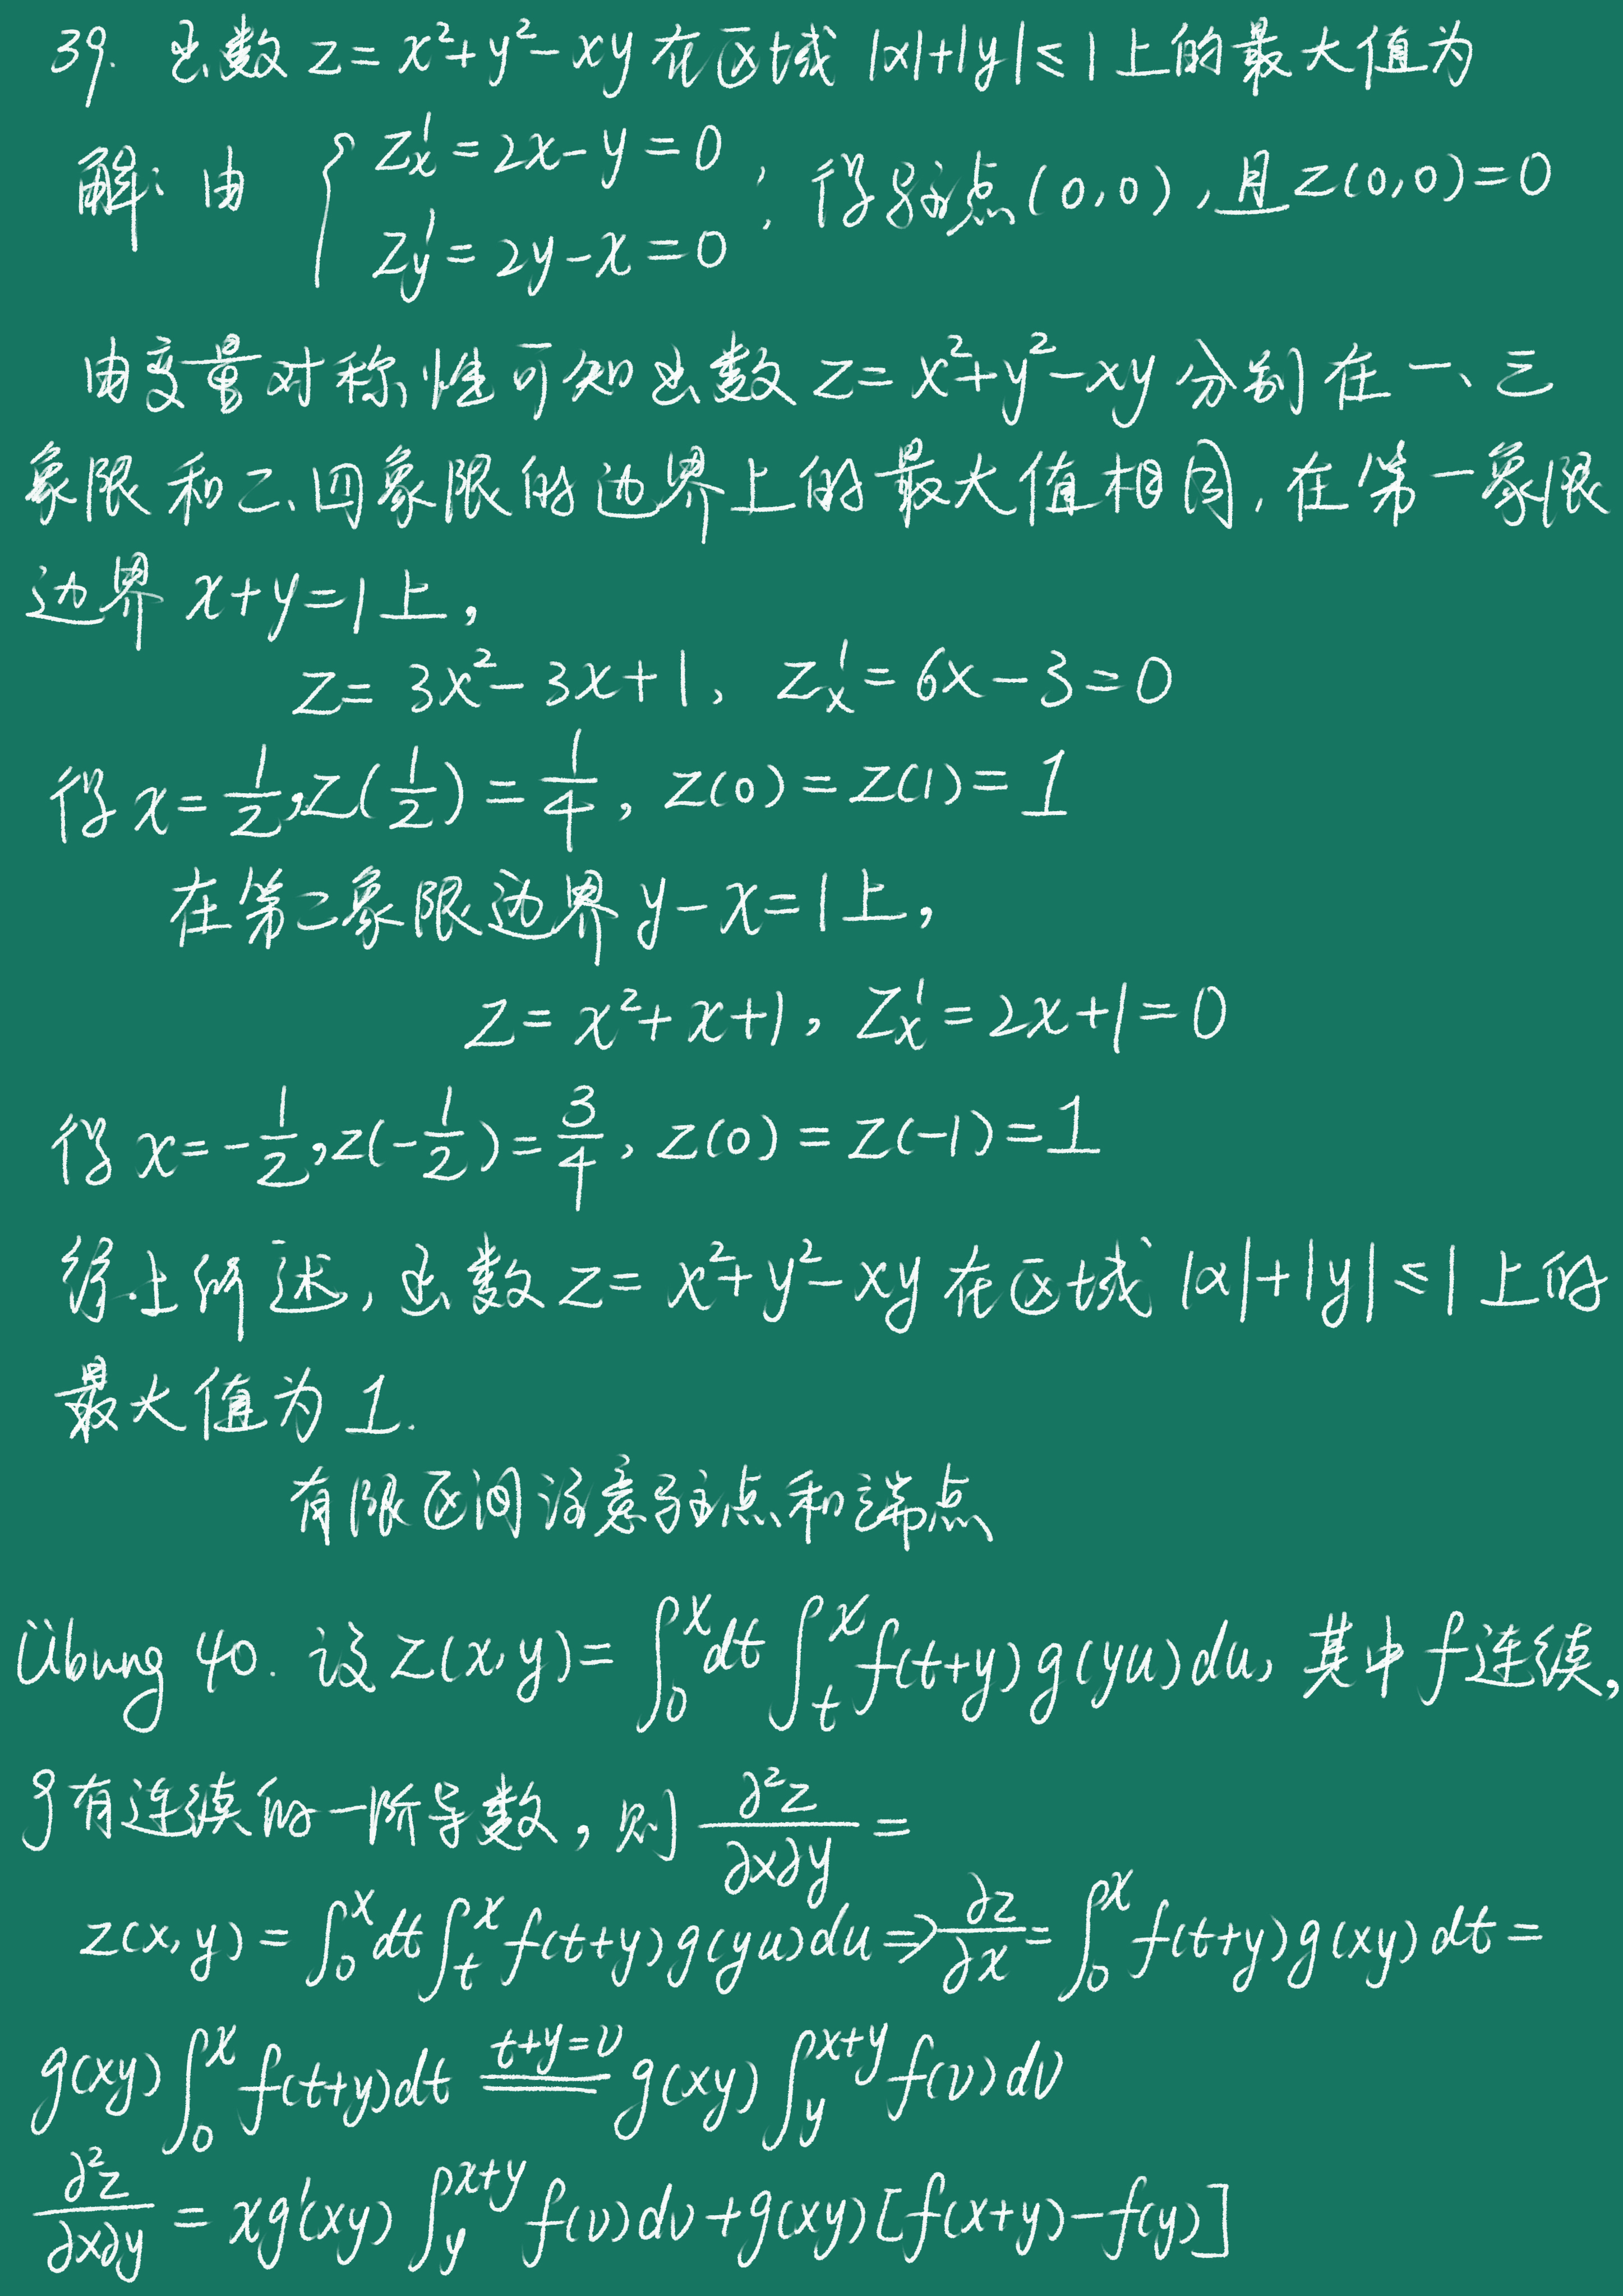 39. 函数 z=x²+y²-xy 在区域 |x|+|y|≤1上的最大值为
解: 由 { z'ₓ=2x-y=0 ; z'_y=2y-x=0 , 得驻点(0,0),且z(0,0)=0
由变量对称性可知函数 z=x²+y²-xy 分别在一、三
象限和二、四象限的边界上的最大值相同,在第一象限
边界 x+y=1上,
z=3x²-3x+1, z'ₓ=6x-3=0
得 x=1/2,z(1/2)=1/4, z(0)=z(1)=1
在第二象限边界 y-x=1上,
z=x²+x+1, z'ₓ=2x+1=0
得 x=-1/2,z(-1/2)=3/4, z(0)=z(-1)=1
综上所述,函数 z=x²+y²-xy 在区域 |x|+|y|≤1上的
最大值为1.
有限区间注意驻点和端点
Übung 40. 设 z(x,y)=∫₀ˣdt∫ₜˣf(t+y)g(yu)du, 其中f连续,
g有连续的一阶导数,则 ∂²z/∂x∂y=
z(x,y)=∫₀ˣdt∫ₜˣf(t+y)g(yu)du⇒∂z/∂x=∫₀ˣf(t+y)g(xy)dt=
g(xy)∫₀ˣf(t+y)dt ==(t+y=v)== g(xy)∫_y^(x+y) f(v)dv
∂²z/∂x∂y=xg'(xy)∫_y^(x+y) f(v)dv+g(xy)[f(x+y)-f(y)]